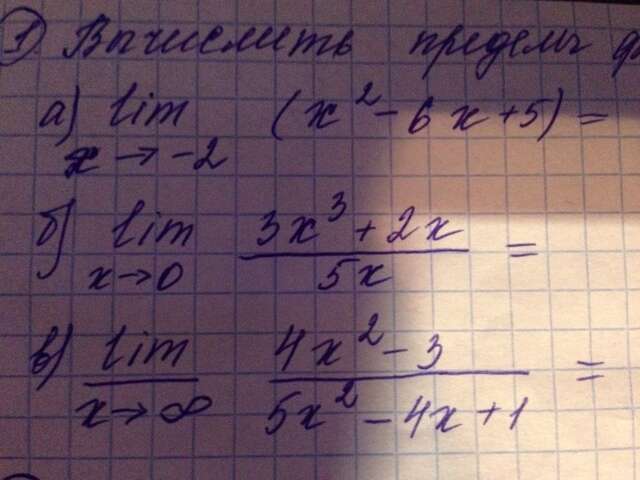 ① Вычислить пределы
а) lim (x² - 6x + 5) =
x → -2
б) lim 3x³ + 2x
x → 0 5x =
в) lim 4x² - 3
x → ∞ 5x² - 4x + 1 =